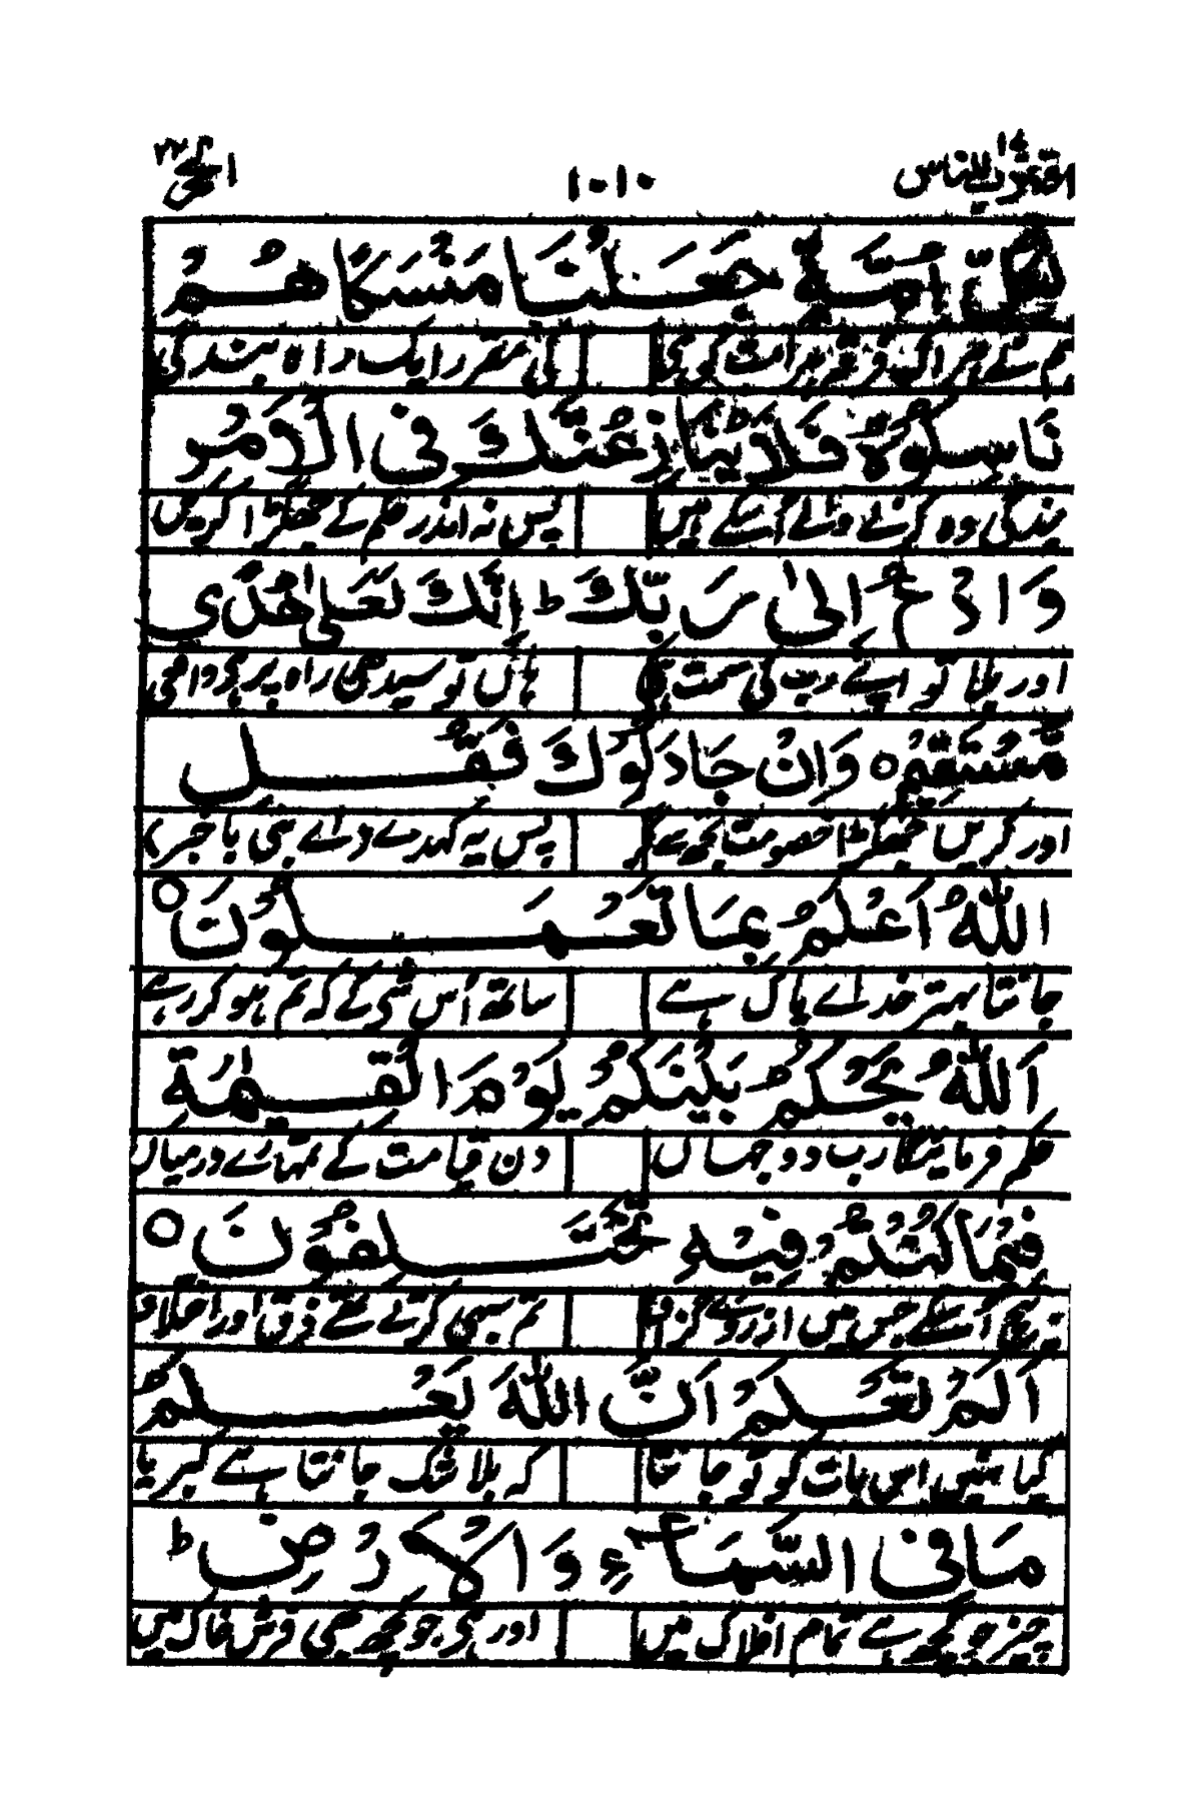 اقترب للناس ۱۷ ۱۰۱۰ الحج ۲۲
لِكُلِّ اُمَّةٍ جَعَلْنَا مَنْسَكًا هُمْ
ہم نے ہر اک فرقہ ہر امت کو ہی کی مقرر ایک راہ بندگی
نَاسِكُوْهُ فَلَا يُنَازِعُنَّكَ فِى الْاَمْرِ
بندگی وہ کرنے والے اُسکے ہیں پس نہ اندر حکم کے جھگڑا کریں
وَادْعُ اِلٰى رَبِّكَ ط اِنَّكَ لَعَلٰى هُدًى
اور بلا تو اپنے رب کی سمت ہی تو سیدھی راہ پر ہے واقعی
مُّسْتَقِيْمٍ ○ وَاِنْ جَادَلُوْكَ فَقُلِ
اور کریں جھگڑا خصومت تجھ سے گر پس یہ کہدے اے نبی با خبر
اللّٰهُ اَعْلَمُ بِمَا تَعْمَلُوْنَ ○
جانتا بہتر خدائے پاک ہے ساتھ اُس شی کے کہ تم ہو کر رہے
اَللّٰهُ يَحْكُمُ بَيْنَكُمْ يَوْمَ الْقِيٰمَةِ
حکم فرمائیگا رب دو جہاں دن قیامت کے تمہارے درمیاں
فِيْمَا كُنْتُمْ فِيْهِ تَخْتَلِفُوْنَ ○
بیچ اُسکے جس میں از روئے گزاف تم سبھی کرتے تھے فرق اور اختلاف
اَلَمْ تَعْلَمْ اَنَّ اللّٰهَ يَعْلَمُ
کیا نہیں اس بات کو تو جانتا کہ بلا شک جانتا ہے کبریا
مَا فِى السَّمَآءِ وَالْاَرْضِ ط
چیز جو کچھ ہے تمام افلاک میں اور ہے جو کچھ بھی فرش خاک میں